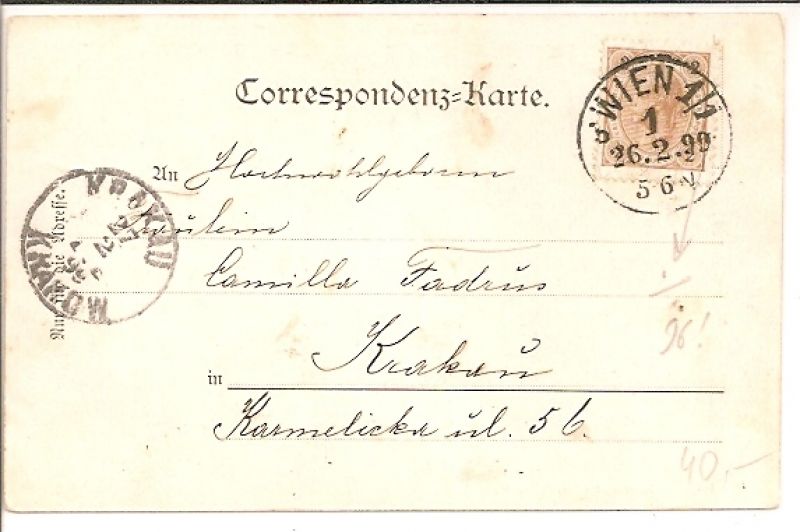 Correspondenz-Karte.
WIEN 1/1
1
26.2.99
5-6 N
An Hochwohlgeboren
Fräulein
Camilla Fadrus
Krakau
in
Karmelicka ul. 56.
Nur für die Adresse.
KRAKAU
KRAKÓW
96!
40,-